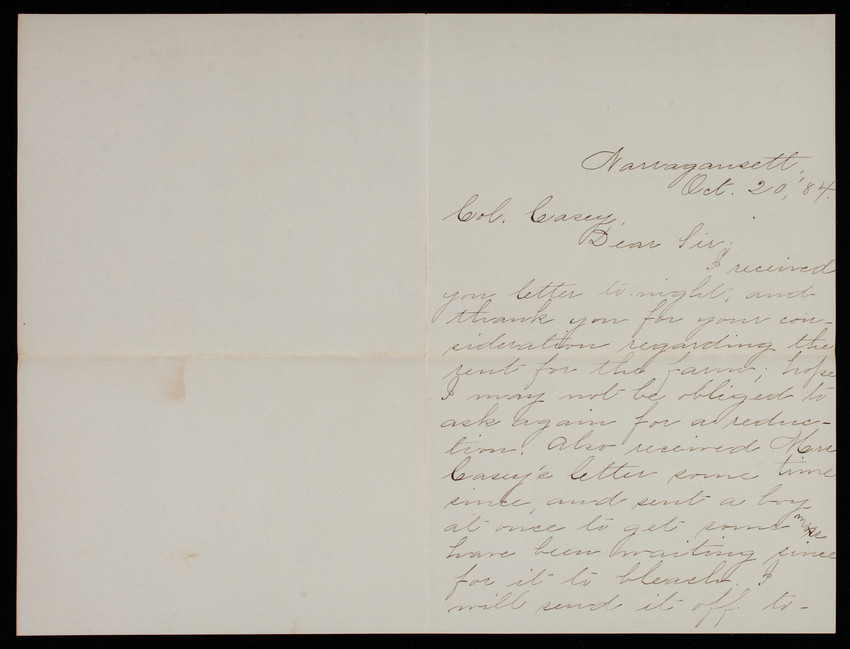 Narragansett,
Oct. 20, '84.
Col. Casey,
Dear Sir;
I received
you letter to night, and
thank you for your con-
sideration regarding the
rent for the farm; hope
I may not be obliged to
ask again for a reduc-
tion. Also received Mrs
Casey's letter some time
since, and sent a boy
at once to get some
have been waiting since
for it to bleach. I
will send it off to-